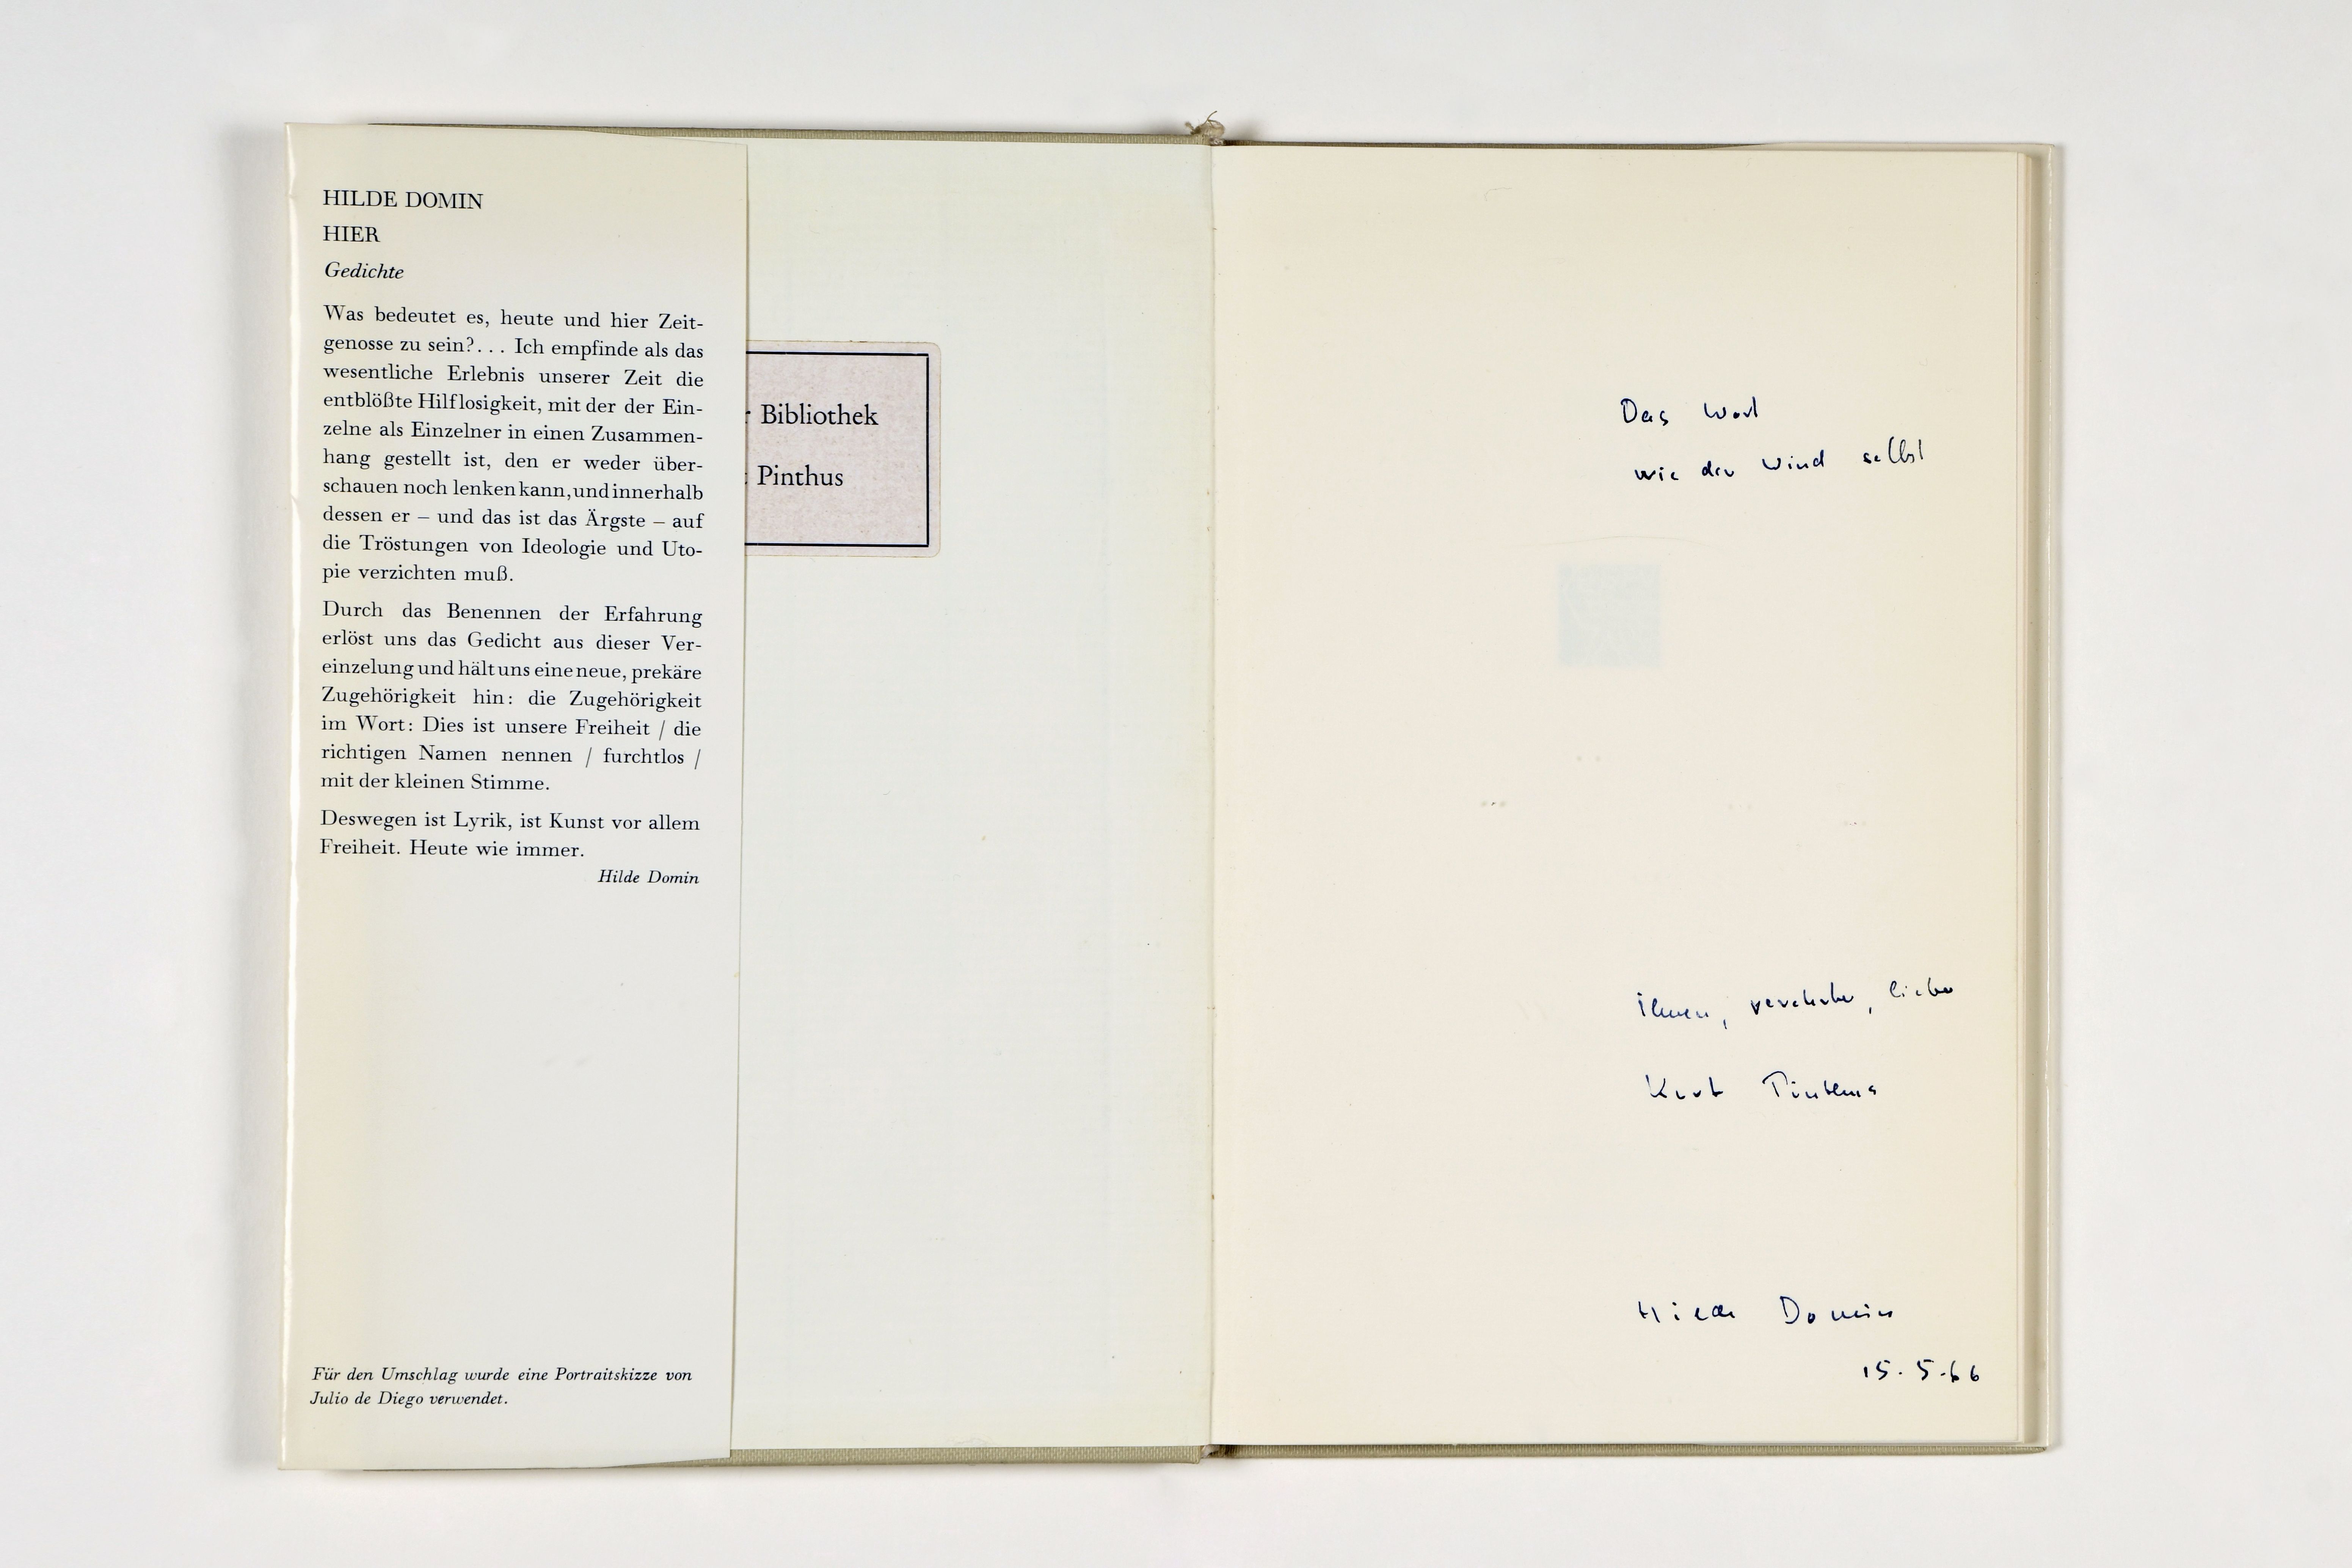 HILDE DOMIN
HIER
Gedichte
Was bedeutet es, heute und hier Zeit-
genosse zu sein?... Ich empfinde als das
wesentliche Erlebnis unserer Zeit die
entblößte Hilflosigkeit, mit der der Ein-
zelne als Einzelner in einen Zusammen-
hang gestellt ist, den er weder über-
schauen noch lenken kann, und innerhalb
dessen er – und das ist das Ärgste – auf
die Tröstungen von Ideologie und Uto-
pie verzichten muß.
Durch das Benennen der Erfahrung
erlöst uns das Gedicht aus dieser Ver-
einzelung und hält uns eine neue, prekäre
Zugehörigkeit hin: die Zugehörigkeit
im Wort: Dies ist unsere Freiheit / die
richtigen Namen nennen / furchtlos /
mit der kleinen Stimme.
Deswegen ist Lyrik, ist Kunst vor allem
Freiheit. Heute wie immer.
Hilde Domin
Für den Umschlag wurde eine Portraitskizze von
Julio de Diego verwendet.
r Bibliothek
Pinthus
Das Wort
wie der Wind selbst
Ihnen, verehrter, lieber
Kurt Pinthus
Hilde Domin
15.5.66